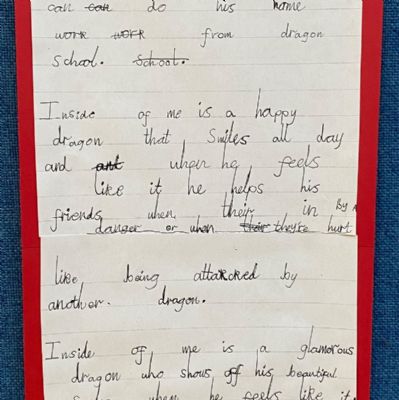 can can do his home
work work from dragon
school. school.
Inside of me is a happy
dragon that smiles all day
and ant when he feels
like it he helps his
friends when their in
By A
danger or when their they're hurt
like being attarcked by
another. dragon.
Inside of me is a glamorous
dragon who shows off his beautiful
when he feels like it